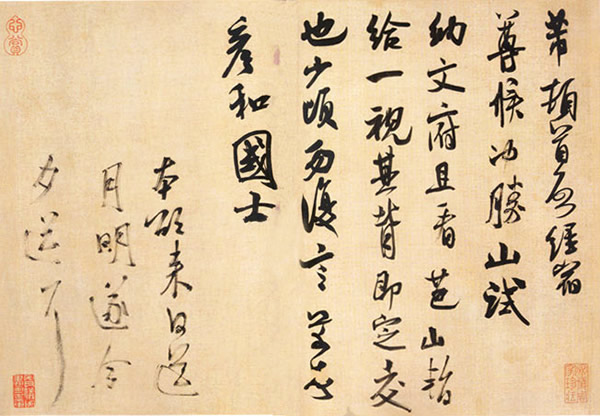 芾頓首啓經宿
尊候沖勝山試
納文府且看芭山暫
給一視其背即定交
也少頃勿復言芾頓首
彥和國士
本欲来日送
月明遂今
夕送耳